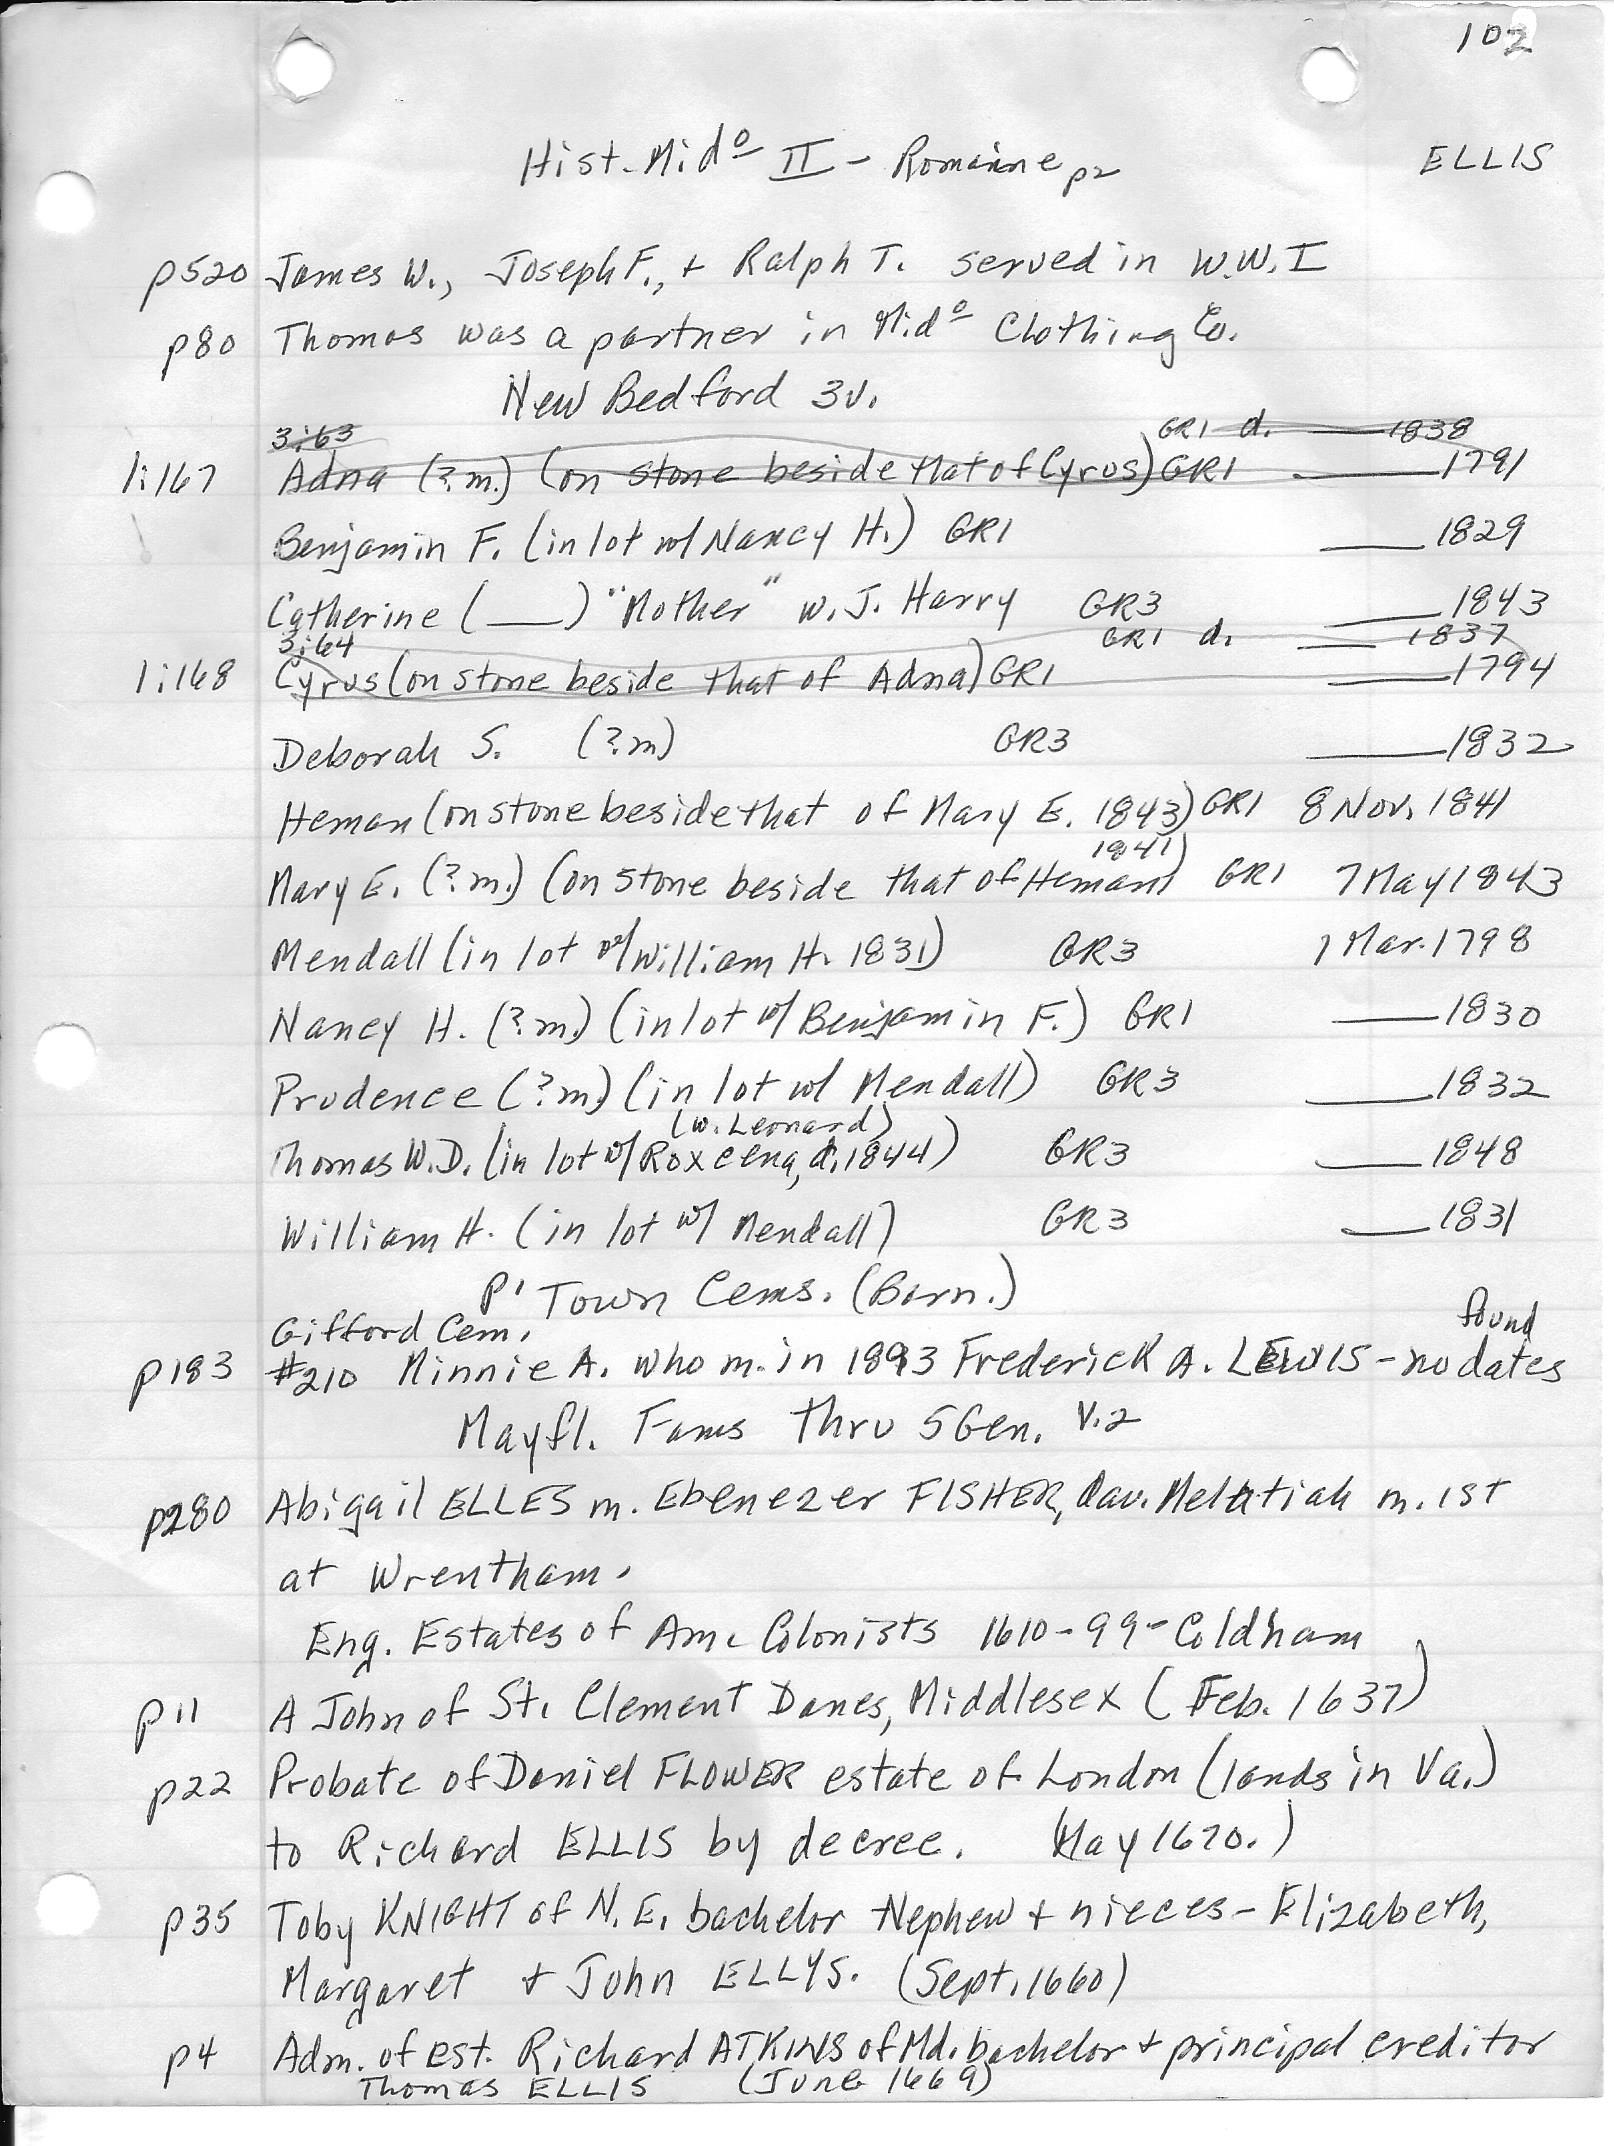 102
Hist. Mid⁰ II - Romaine p2
ELLIS
p520 James W., Joseph F., + Ralph T. served in W.W.I
p80 Thomas was a partner in Mid⁰ Clothing Co.
New Bedford 3v.
3:63 GR1 d. —— 1838
1:167 Adna (?m.) (on stone beside that of Cyrus) GR1 —— 1791
Benjamin F. (in lot w/ Nancy H.) GR1 —— 1829
Catherine (___) "Mother" w. J. Harry GR3 —— 1843
3:64 GR1 d. —— 1837
1:168 Cyrus (on stone beside that of Adna) GR1 —— 1794
Deborah S. (?m) GR3 —— 1832
Heman (on stone beside that of Mary E. 1843) GR1 8 Nov. 1841
1841)
Mary E. (?m.) (on stone beside that of Heman) GR1 7 May 1843
Mendall (in lot w/ William H. 1831) GR3 1 Mar. 1798
Nancy H. (?m.) (in lot w/ Benjamin F.) GR1 —— 1830
Prudence (?m.) (in lot w/ Mendall) GR3 —— 1832
(w. Leonard)
Thomas W.D. (in lot w/ Roxcena, d. 1844) GR3 —— 1848
William H. (in lot w/ Mendall) GR3 —— 1831
P'Town Cems. (Barn.)
Gifford Cem. found
p183 #210 Minnie A. who m. in 1893 Frederick A. LEWIS - no dates
Mayfl. Fams thru 5 Gen. V.2
p280 Abigail ELLES m. Ebenezer FISHER, dau. Melatiah m. 1st
at Wrentham.
Eng. Estates of Am. Colonists 1610-99 - Coldham
p11 A John of St. Clement Danes, Middlesex (Feb. 1637)
p22 Probate of Daniel FLOWER estate of London (lands in Va.)
to Richard ELLIS by decree. (May 1670.)
p35 Toby KNIGHT of N.E. bachelor Nephew + nieces - Elizabeth,
Margaret + John ELLYS. (Sept. 1660)
p4 Adm. of est. Richard ATKINS of Md. bachelor + principal creditor
Thomas ELLIS (June 1669)